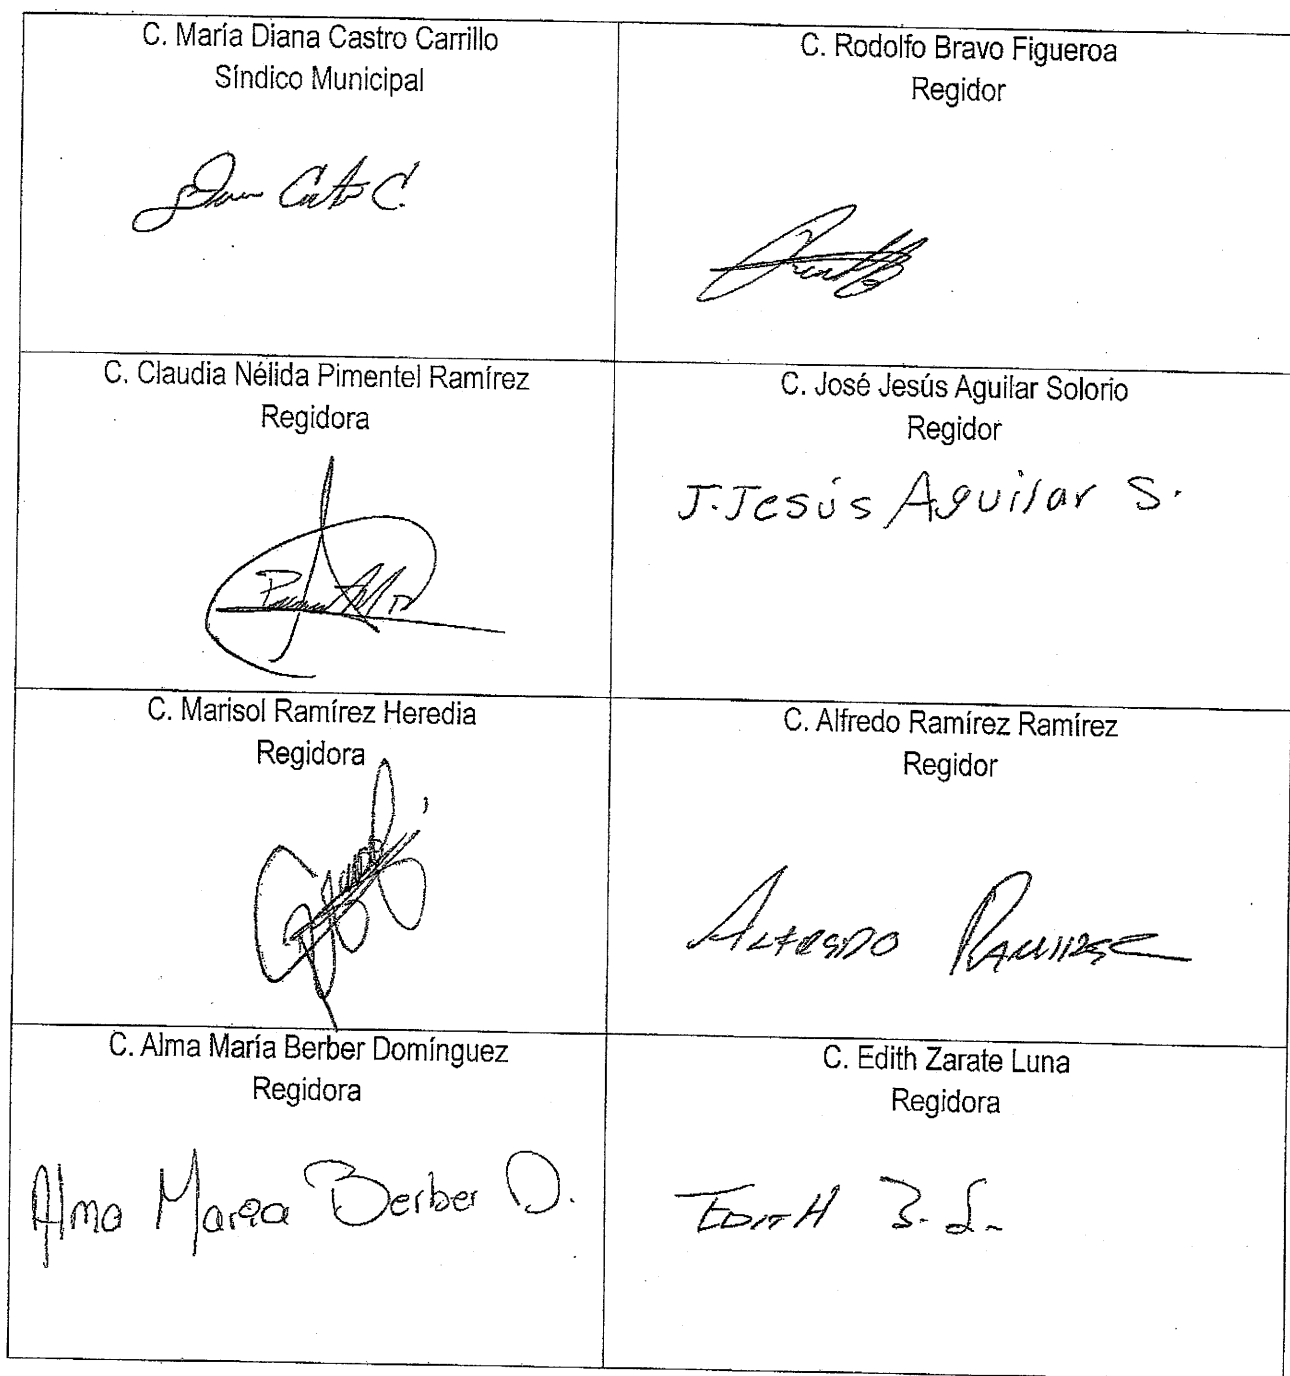 C. María Diana Castro Carrillo
Síndico Municipal
Castro C.
C. Rodolfo Bravo Figueroa
Regidor
C. Claudia Nélida Pimentel Ramírez
Regidora
C. José Jesús Aguilar Solorio
Regidor
J. Jesús Aguilar S.
C. Marisol Ramírez Heredia
Regidora
C. Alfredo Ramírez Ramírez
Regidor
ALFREDO RAMIREZ
C. Alma María Berber Domínguez
Regidora
Alma María Berber D.
C. Edith Zarate Luna
Regidora
EDITH Z. L.